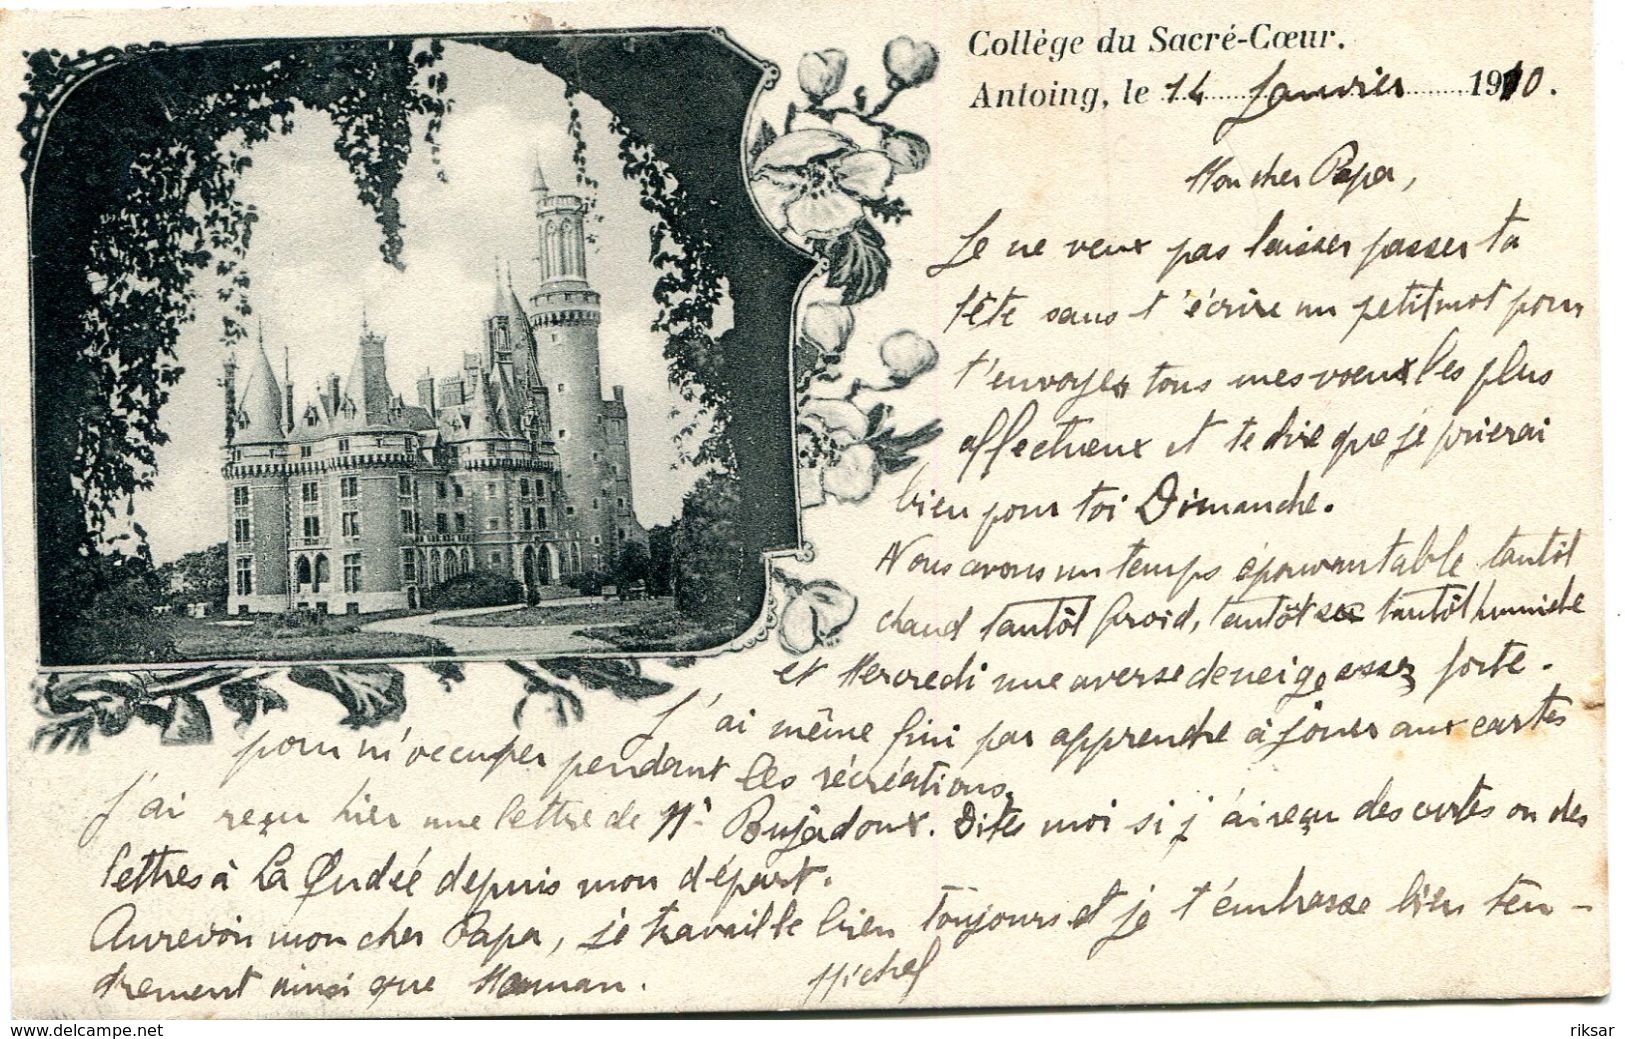 Collège du Sacré-Cœur.
Antoing, le 14 Janvier 1910.
Mon cher Papa,
Je ne veux pas laisser passer ta
fête sans t'écrire un petit mot pour
t'envoyer tous mes voeux les plus
affectueux et te dire que je prierai
bien pour toi Dimanche.
Nous avons un temps épouvantable tantôt
chaud tantôt froid, tantôt sec tantôt humide
et Mercredi une averse de neige assez forte.
J'ai même fini par apprendre à jouer aux cartes
pour m'occuper pendant les récréations.
J'ai reçu hier une lettre de Mr Boujadoux. Dites moi si j'ai reçu des cartes ou des
lettres à La depuis mon départ.
Aurevoir mon cher Papa, je travaille bien toujours et je t'embrasse bien ten-
drement ainsi que Maman.
Michel
riksar